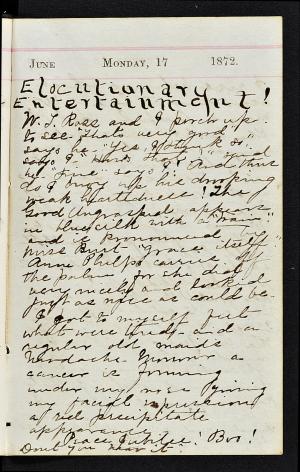 JUNE MONDAY, 17 1872.
Elocutionary
Entertainment!
W. S. Ross and I perch up
to see. "That's very good"
says he "Yes
says I
he "Fine" says I. And thus
do I buoy up his drooping
weak heartedness! The
Good appears
in blue silk with a "train"
and is pronounced by
Miss Burt "Grace itself"
Anna Philps carries off
the palm for she did
very nicely and looked
just as nice as could be.
I got to myself felt
what were and a
regular old maids
headache. a
cancer is forming
under my nose giving
my facial expression
a red precipitate
appearance.
Peace Jubilee! Boo!
Don't you hear it